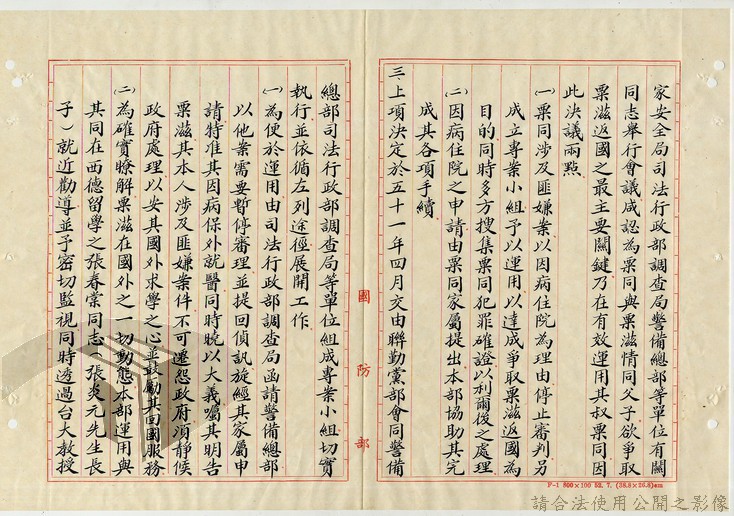 家安全局司法行政部調查局警備總部等單位有關
同志舉行會議咸認為粟同與粟滋情同父子欲爭取
粟滋返國之最主要關鍵乃在有效運用其叔粟同因
此決議兩點
㈠粟同涉及匪嫌案以因病住院為理由停止審判另
成立專案小組予以運用以達成爭取粟滋返國為
目的同時多方搜集粟同犯罪確證以利爾後之處理
㈡因病住院之申請由粟同家屬提出本部協助其完
成其各項手續
三、上項決定於五十一年四月交由聯勤黨部會同警備
總部司法行政部調查局等單位組成專案小組切實
執行並依循左列途徑展開工作
㈠為便於運用由司法行政部調查局函請警備總部
以他案需要暫停審理並提回偵訊旋經其家屬申
請特准其因病保外就醫同時曉以大義囑其明告
粟滋其本人涉及匪嫌案件不可遷怨政府須靜候
政府處理以安其國外求學之心並鼓勵其回國服務
㈡為確實瞭解粟滋在國外之一切動態本部運用與
其同在西德留學之張春棠同志（張炎元先生長
子）就近勸導並予密切監視同時透過台大教授
國防部
F-1 800×100 52. 7. (38.8×26.8)cm
請合法使用公開之影像